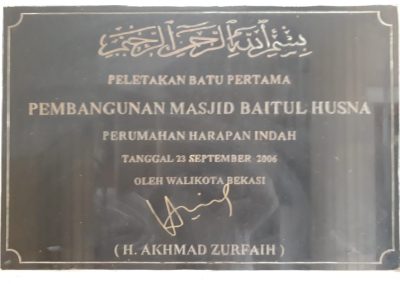 بسم الله الرحمن الرحيم
PELETAKAN BATU PERTAMA
PEMBANGUNAN MASJID BAITUL HUSNA
PERUMAHAN HARAPAN INDAH
TANGGAL 23 SEPTEMBER 2006
OLEH WALIKOTA BEKASI
( H. AKHMAD ZURFAIH )